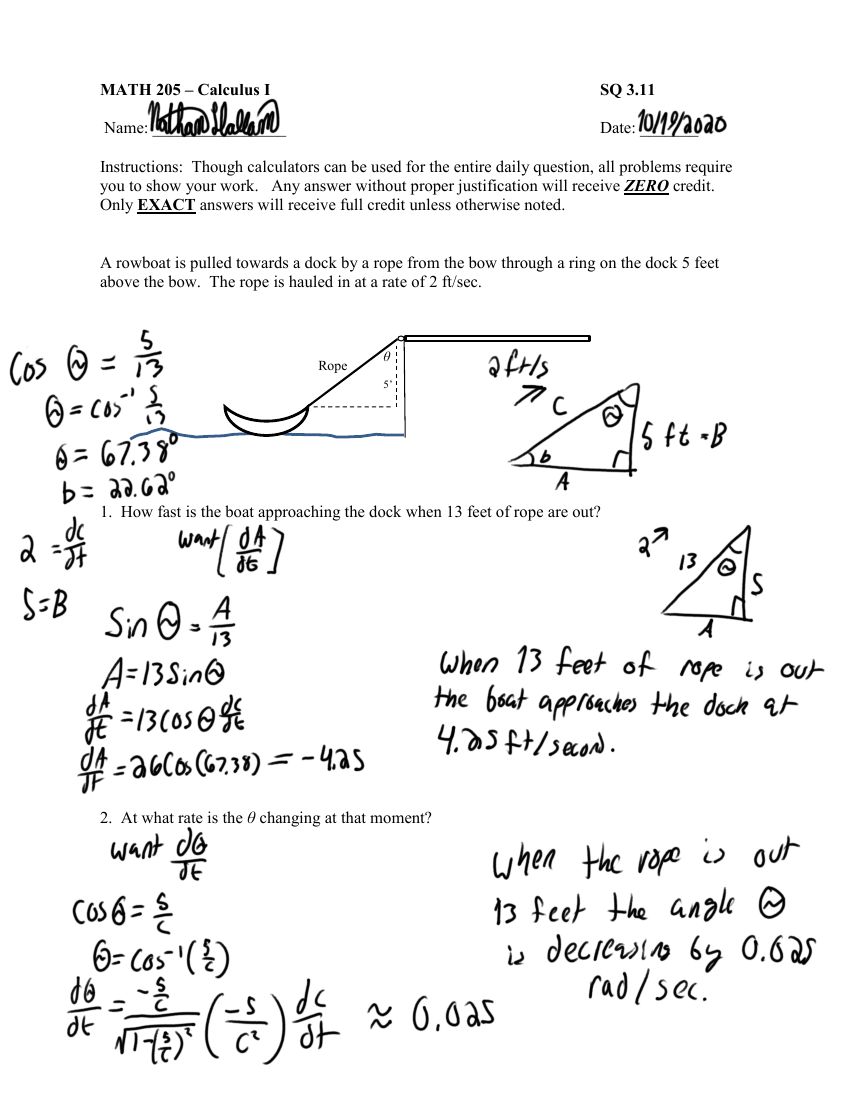 MATH 205 – Calculus I SQ 3.11
Name: Nathan Hallam Date: 10/19/2020
Instructions: Though calculators can be used for the entire daily question, all problems require
you to show your work. Any answer without proper justification will receive ZERO credit.
Only EXACT answers will receive full credit unless otherwise noted.
A rowboat is pulled towards a dock by a rope from the bow through a ring on the dock 5 feet
above the bow. The rope is hauled in at a rate of 2 ft/sec.
Cos Θ = 5/13
Θ = cos⁻¹ 5/13
Θ = 67.38°
b = 22.62°
Rope
θ
5'
2ft/s
C
Θ
5 ft = B
b
A
1. How fast is the boat approaching the dock when 13 feet of rope are out?
2 = dc/dt
want [dA/dt]
5=B
2
13
Θ
5
A
Sin Θ = A/13
A=13SinΘ
dA/dt = 13cosΘ dc/dt
dA/dt = 26Cos(67.38) = -4.25
When 13 feet of rope is out
the boat approaches the dock at
4.25 ft/second.
2. At what rate is the θ changing at that moment?
want dΘ/dt
Cos Θ = 5/c
Θ = Cos⁻¹(5/c)
dΘ/dt = -5/c / √1-(5/c)² (-5/c²) dc/dt ≈ 0.025
When the rope is out
13 feet the angle Θ
is decreasing by 0.025
rad/sec.